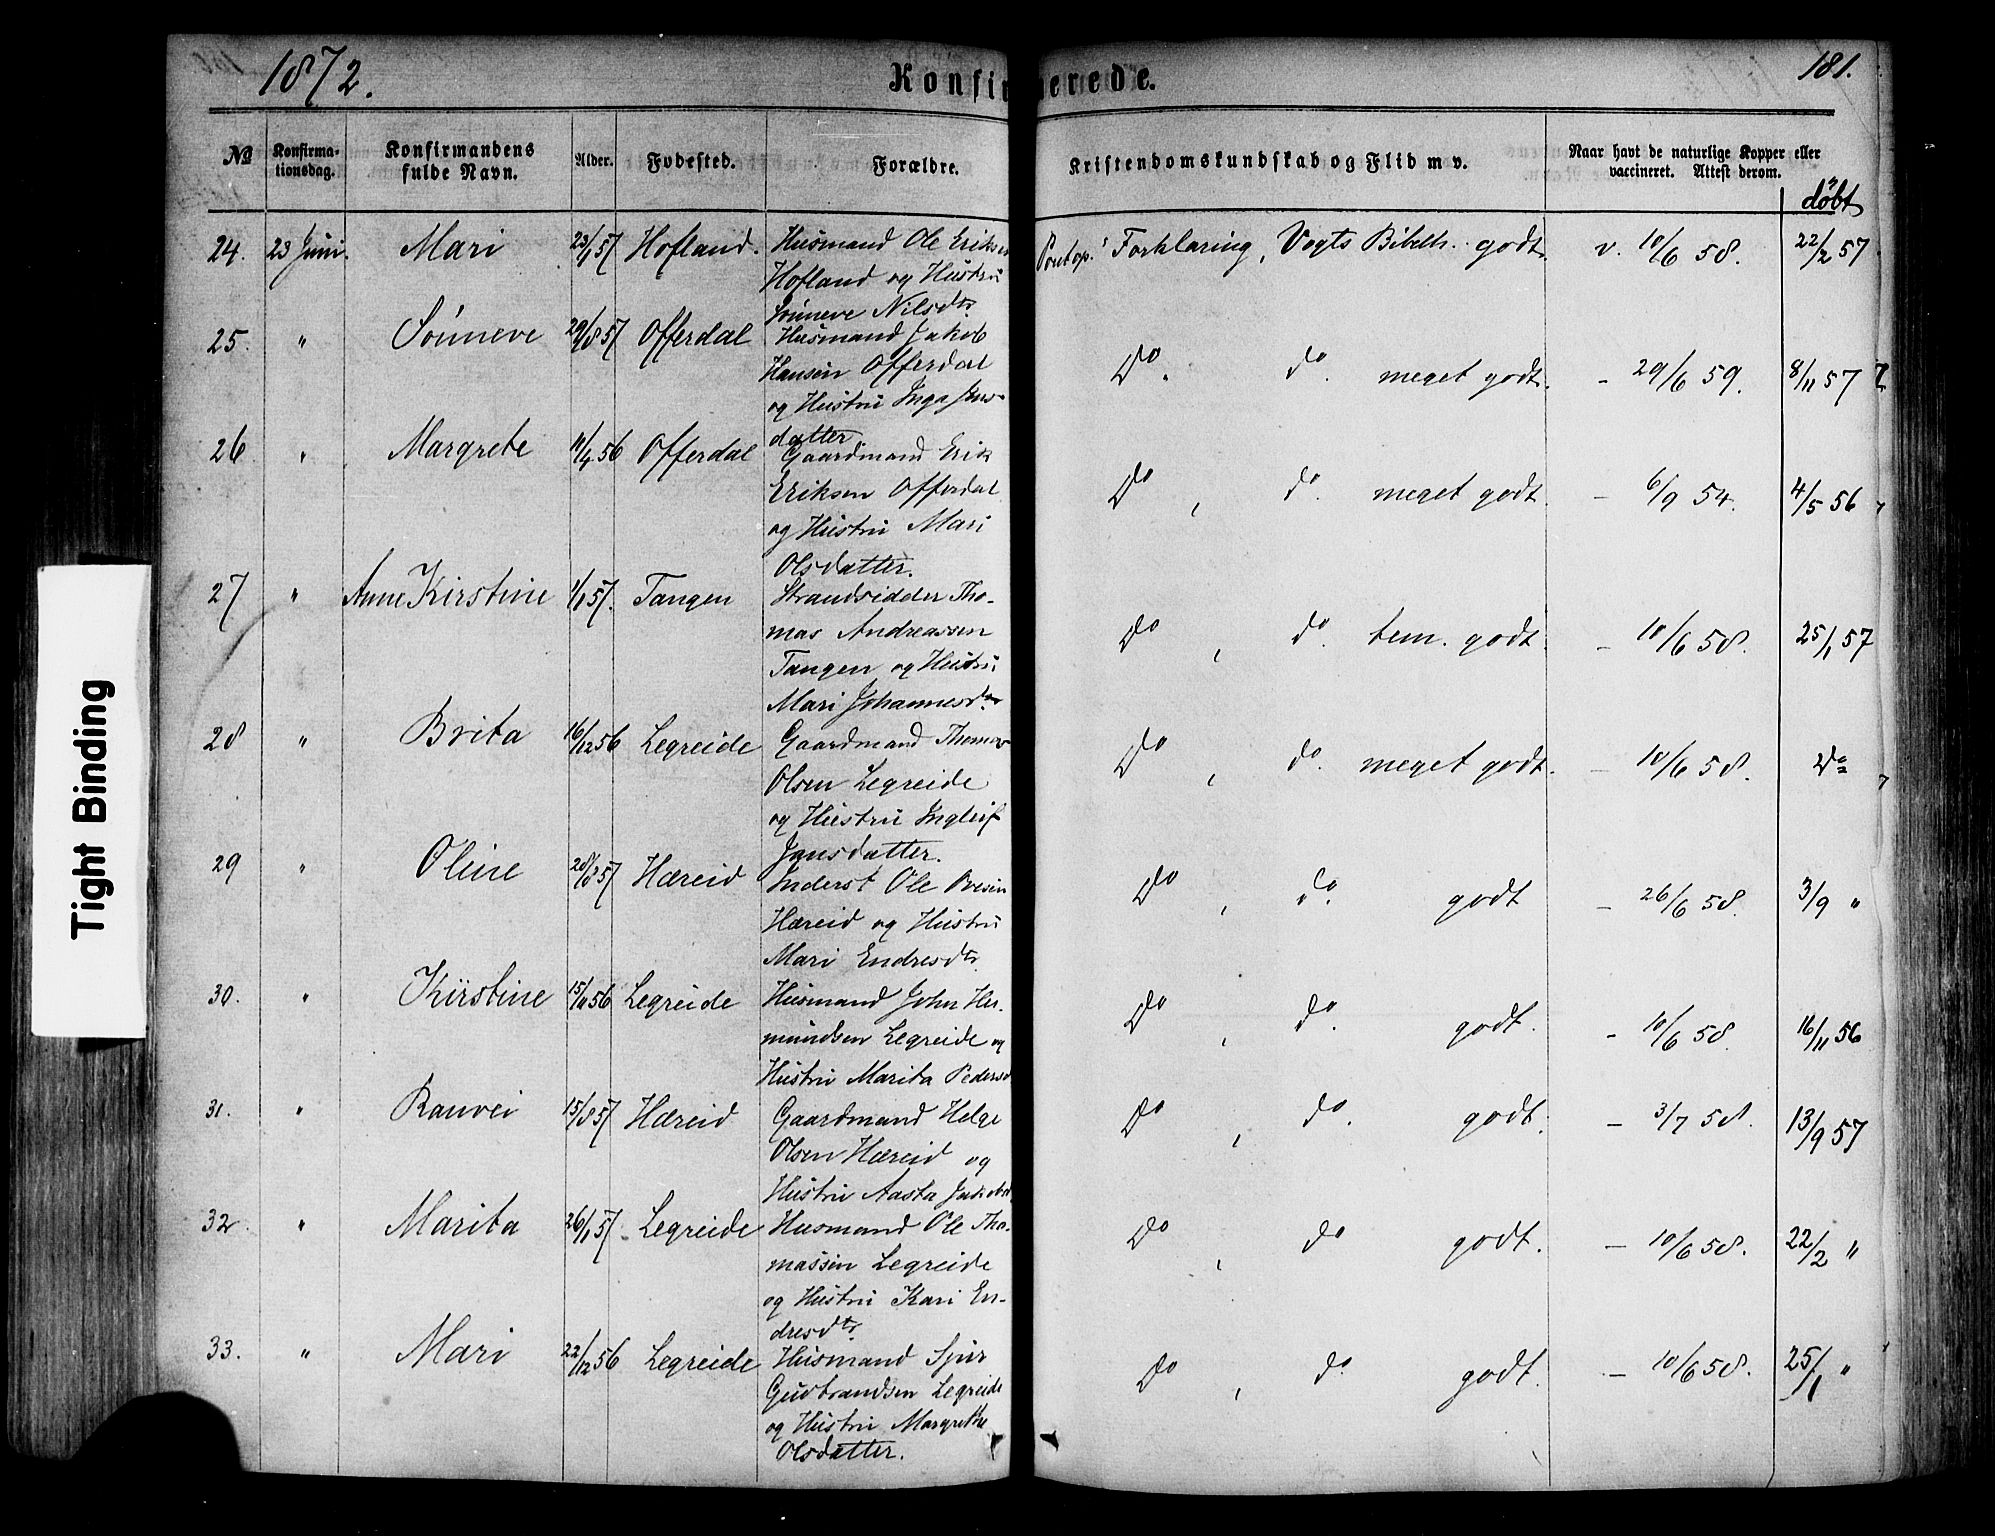 1872.
Konfirmerede.
181.
No
Konfirma-
tionsdag.
Konfirmandens
fulde Navn.
Alder.
Fødested.
Forældre.
Kristendomskundskab og Flid m v.
Naar havt de naturlige Kopper eller
vaccineret. Attest derom.
døbt
24. 23 Juni. Mari 23/1 57 Hofland. Husmand Ole Eriksen Pontop.s Forklaring, Vogts Bibelh. godt. v. 10/6 58. 22/2 57.
Hofland og Hustru
Sønneve Nilsdtr
25. " Sønneve 29/8 57 Offerdal Husmand Jakob
Hansen Offerdal Do. do. meget godt. - 29/6 59. 8/11 57
og Hustru Inga Jens-
datter
26 " Margrete 11/4 56 Offerdal Gaardmand Erik
Eriksen Offerdal Do, do. meget godt. - 6/9 54. 4/5 56
og Hustru Mari
Olsdatter.
27 " Anne Kirstine 1/1 57. Tangen Strandsidder Tho-
mas Andreassen Do, do tem. godt. - 10/6 58. 25/1 57
Tangen og Hustru
Mari Johannesdtr
28 " Brita 16/12 56 Legreide Gaardmand Thomas Do, do. meget godt. - 10/6 58. Do
Olsen Legreide
og Hustru Ingleif
Jonsdatter.
29 " Oline 28/8 57 Hæreid Inderst Ole Do, do. godt - 26/6 58. 3/9 "
Hæreid og Hustru
Mari Endresdtr
30. " Kirstine 15/11 56 Legreide Husmand John Her- Do, do. godt. - 10/6 58 16/11 56
mundsen Legreide og
Hustru Marita Pedersd
31. " Ranvei 15/8 57 Hæreid Gaardmand Helge Do, do. godt. - 3/7 58. 13/9 57
Olsen Hæreid og
Hustru Aasta
32. " Marita 26/1 57. Legreide Husmand Ole Tho- Do, do godt. - 10/6 58. 22/2 "
massen Legreide
og Hustru Kari En-
dresdtr.
33. " Mari 22/12 56 Legreide Husmand Sjur Do, do. godt. - 10/6 58. 25/1 "
Gudbrandsen Legreide
og Hustru Margrethe
Olsdatter.
Tight Binding